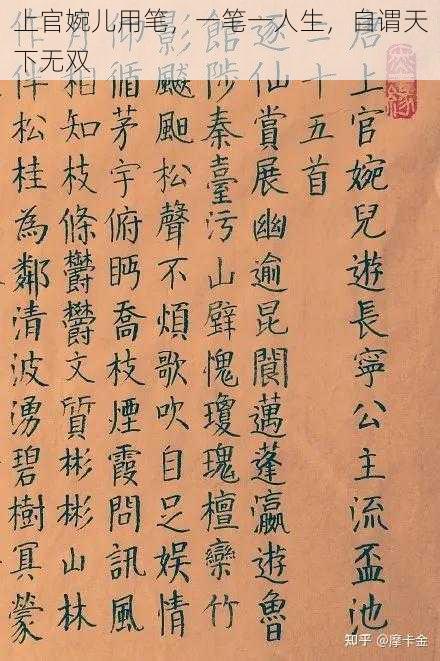 上官婉儿用笔，一笔一人生，自谓天
下无双
唐上官婉兒遊長寧公主流盃池
二十五首
逐仙賞展幽逾昆閬邁蓬瀛遊魯
館陟秦臺污山壁愧瓊瑰檀欒竹
影飈松聲不煩歌吹自足娛情
仰循茅宇俯眄喬枝煙霞問訊風
月相知枝條鬱鬱文質彬彬山林
作伴松桂為鄰清波湧碧樹冥蒙
知乎 @摩卡金